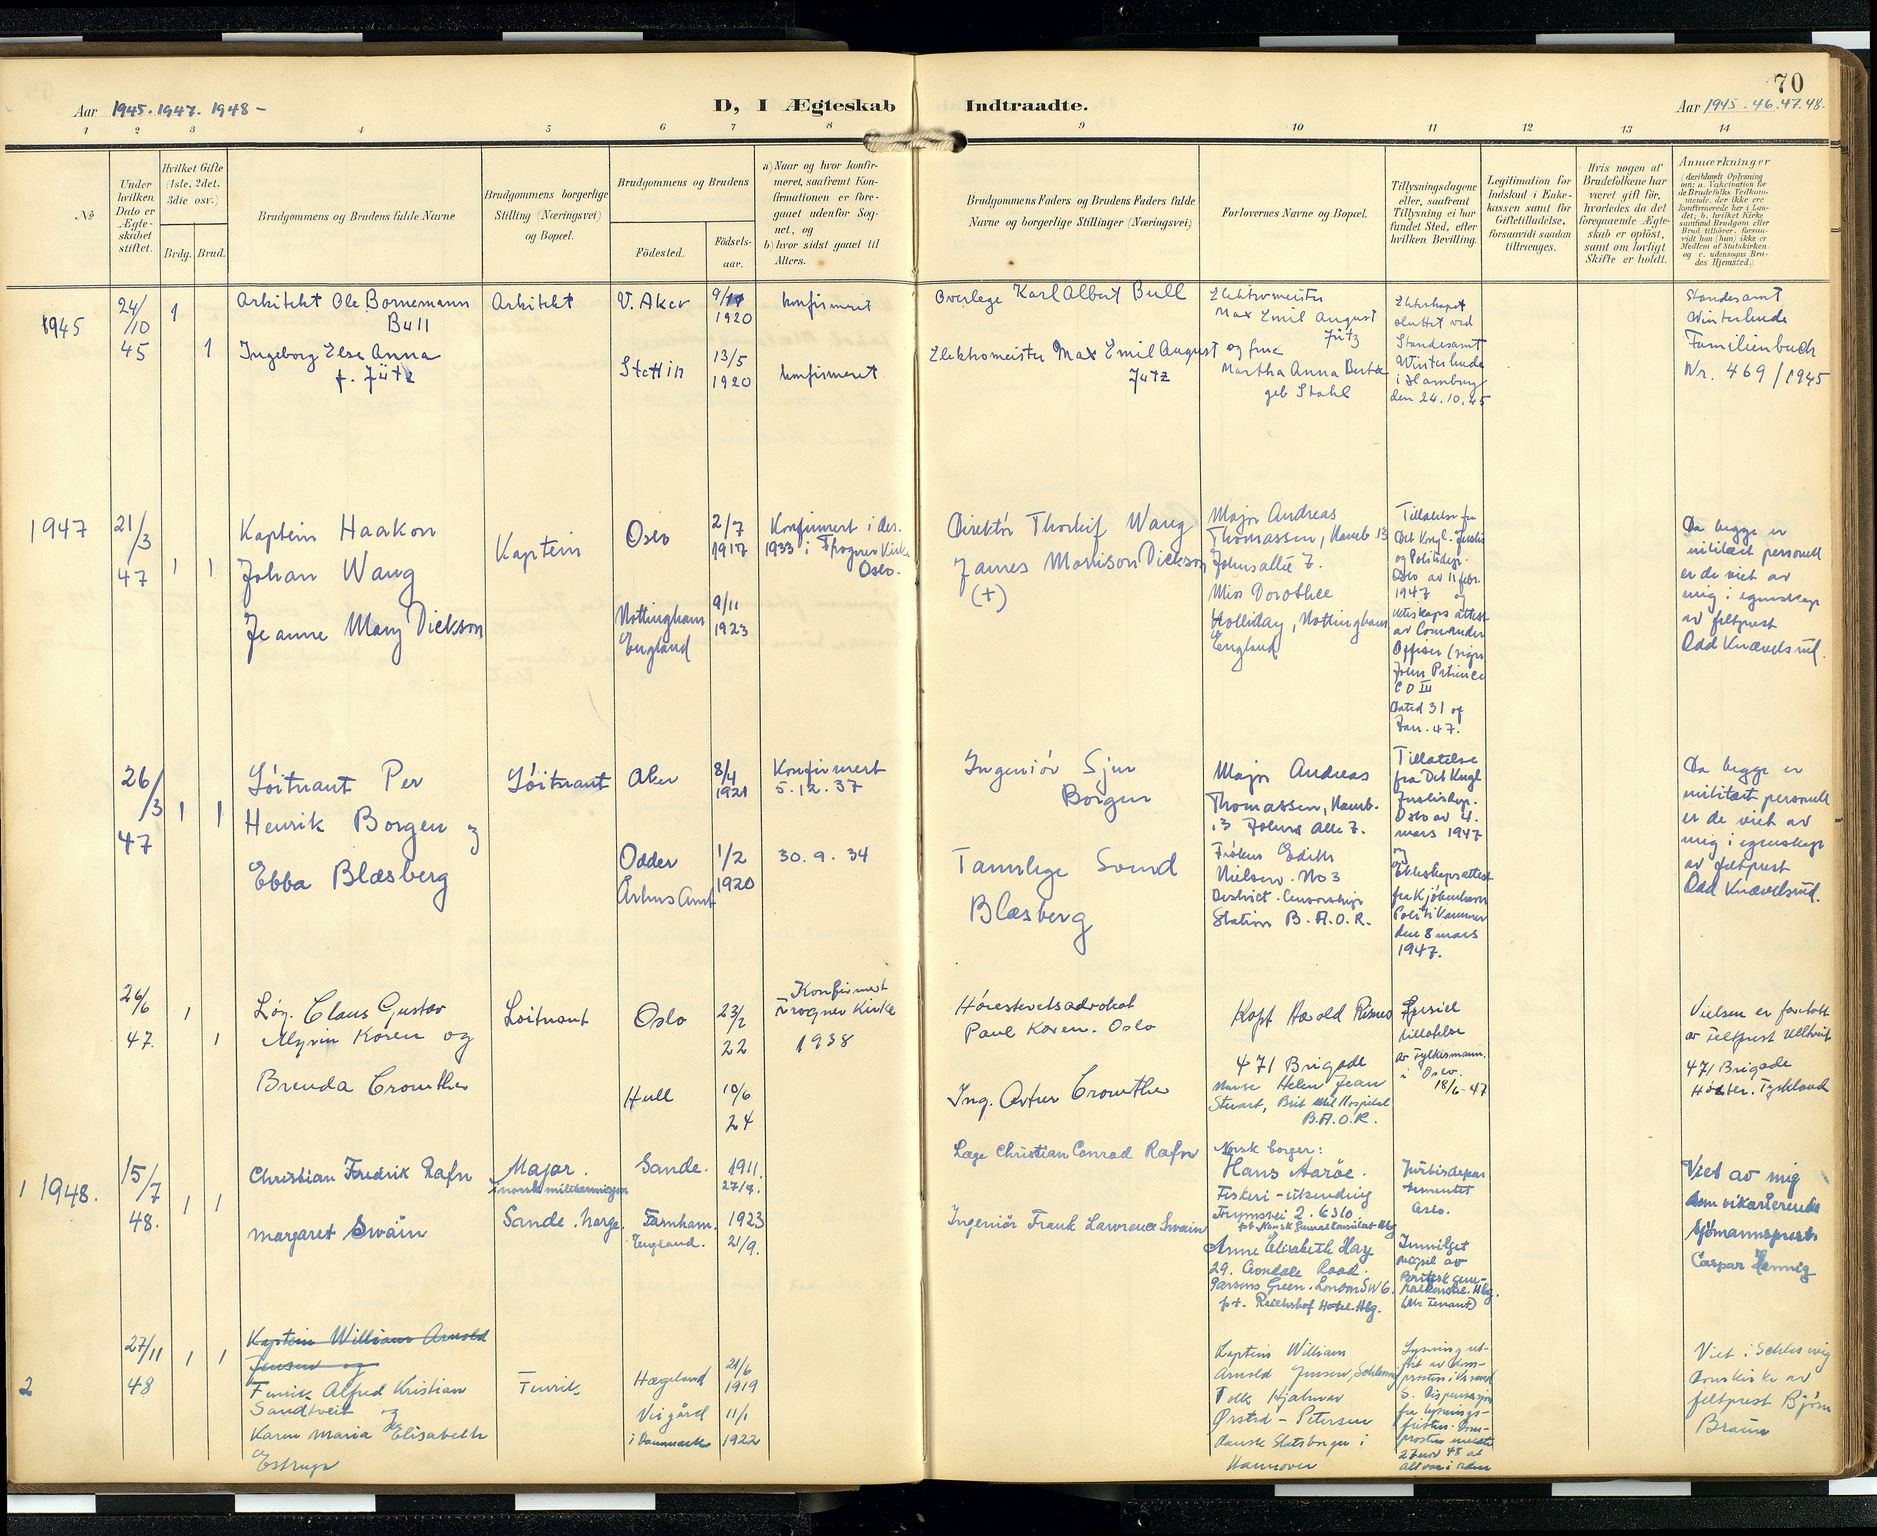 70
Aar 1945. 1947. 1948 –
D, I Ægteskab Indtraadte.
Aar 1945. 46. 47. 48.
1 2 3 4 5 6 7 8 9 10 11 12 13 14
№
Under hvilken Dato er Ægteskabet stiftet.
Hvilket Gifte (1ste, 2det, 3die osv.)
Brdg. Brud.
Brudgommens og Brudens fulde Navne
Brudgommens borgerlige Stilling (Næringsvei) og Bopæl.
Brudgommens og Brudens
Fødested.
Fødselsaar.
a) Naar og hvor konfirmeret, saafremt Konfirmationen er foregaaet udenfor Sognet, og
b) hvor sidst gaaet til Alters.
Brudgommens Faders og Brudens Faders fulde Navne og borgerlige Stillinger (Næringsvei)
Forlovernes Navne og Bopæl.
Tillysningsdagene eller, saafremt Tillysning ei har fundet Sted, efter hvilken Bevilling.
Legitimation for Indskud i Enkekassen samt for Giftetilladelse, forsaavidt saadan tiltrænges.
Hvis nogen af Brudefolkene har været gift før, hvorledes da det foregaaende Ægteskab er opløst, samt om lovligt Skifte er holdt.
Anmærkninger
1945
24/10 45
1
1
Arkitekt Ole Bornemann
Bull
Ingeborg Else Anna
f. Jütz
Arkitekt
V. Aker
1920
konfirmeret
Stettin
13/5
1920
konfirmeret
Overlege Karl Albert Bull
Elektromeister Max Emil August
Jutz
Elektromeister
Max Emil August
Jütz
og frue
Martha Anna
geb Stahl
Ekteskapet
sluttet ved
Standesamt
Winterhude
i Hamburg
den 24.10.45
Standesamt
Winterhude
Familienbuch
Nr. 469/1945
1947
21/3
47
1 1
Kaptein Haakon
Johan Wang
Jeanne Mary Dickson
Kaptein
Oslo
2/7
1917
Nottingham
England
9/11
1923
Konfirmert i des.
1933 i Frogner Kirke
Oslo.
Direktør Thorleif Wang
James Morrison Dickson
(+)
Major Andreas
Thomassen, Hamb 13
Johnsallee 7.
Miss Dorothee
Holliday, Nottingham
England
Tillatelse fra
Det Kngl. Justis
og Politidep.
Oslo av 11 febr.
1947 og
ekteskapsattest
av Comander
Offiser
C D III
Dated 31 of
Jan. 47.
Da begge er
militært personell
er de viet av
mig i egenskap
av feltprest
Odd Knævelsrud.
26/3
47
1 1
Løitnant Per
Henrik Borgen og
Ebba Blæsberg
Løitnant
Aker
8/4
1921
Odder
Århus Amt
1/2
1920
Konfirmert
5.12.37
30.9.34
Ingeniør Sjur
Borgen
Tannlege Svend
Blæsberg
Major Andreas
Thomassen, Hamb.
13 Johns Alle 7.
Frøken Edith
Nielsen. No 3
District Censorship
Station B.A.O.R.
Tillatelse
fra Det Kngl
Justisdep.
Oslo av 4.
mars 1947
og
Ekteskapsattest
fra Kjøbenhavn
Politikammer
den 8 mars
1947.
Da begge er
militært personell
er de viet av
mig i egenskap
av feltprest
Odd Knævelsrud.
26/6
47.
1
1
Løy. Claus Gustav
Koren og
Brenda Crowther
Løitnant
Oslo
23/2
22
Hull
10/6
24
Konfirmert
Frogner Kirke
1938
Høiesterettsadvokat
Paul Koren. Oslo
Ing. Artur Crowther
Kapt Harold
471 Brigade
Nurse Helen Jean
Stewart, Brit Mil Hospital
B.A.O.R.
Spesiel
tillatelse
av Fylkesmann.
i Oslo.
18/6-47
Vielsen er foretatt
av Feltprest
471 Brigade
Høxter. Tyskland
1 1948.
15/7
48.
1 1
Christian Fredrik Rafn
Margaret Swain
Major.
norsk militærmisjon
Sande. Norge.
Sande.
1911.
27/9.
Farnham.
England.
1923
21/9.
Læge Christian Conrad Rafn
Ingeniør Frank Lawrence Swain
Norsk borger:
Hans Aarøe.
Fiskeri-utsending
p.t. Norsk Generalkonsulat Hbg
Anne Elizabeth Hay
29. Road.
Parsons Green. London SW6.
p.t. Reichshof Hotel. Hbg.
Justisdepar
tementet
Oslo.
Innvilget
Britisk gene-
ralkonsul. Hbg.
Viet av mig
som vikarierende
sjømannsprest.
Caspar Hennig
2
27/11
48
1 1
Kaptein William Arnold
Jensen og
Fenrik Alfred Kristian
Sandtveit og
Karen Maria Elisabeth
Estrup
Fenrik
Hægeland
21/6
1919
Veigård
i Danmark
11/1
1922
Kaptein William
Arnold Jensen, Schleswig
Tolk Hjalmar
Ørsted-Petersen
Dansk Statsborger i
Hannover
Lysning ut-
ført av Dom-
prosten i Kr.sand
S. Dispensasjon
fra lysnings-
fristen. Dom-
prosten
27 nov 48 at
alt var i orden
Viet i Schleswig
domkirke av
feltprest Bjørn